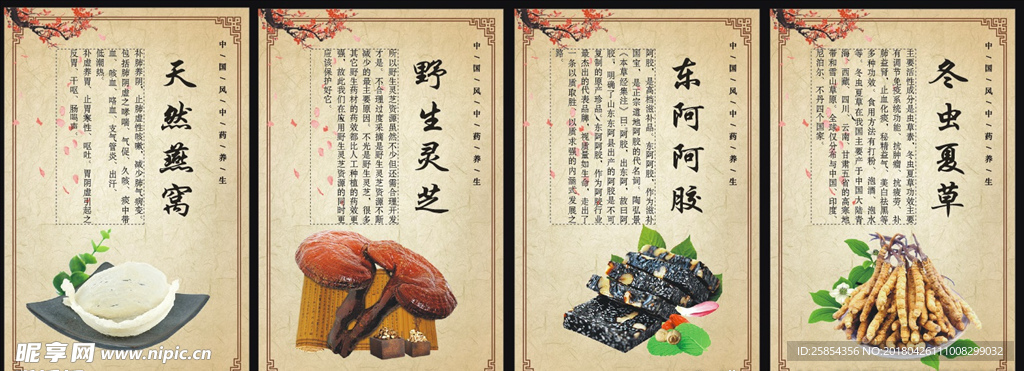 天然燕窝
中国/风/中/药/养/生
补肺养阴，止肺虚性咳嗽、减少肺气病变。
包括肺阴虚之哮喘、气促、久咳、痰中带
血、咳血、嘻血、支气管炎、出汗、
低潮热。
补虚养胃、止胃寒性、呕吐。胃阴虚引起之
反胃、干呕、肠鸣声。
野生灵芝
中/国/风/中/药/养/生
所以野生灵芝资源虽然不少但还需合理开发
才是，不合理过度采摘是野生灵芝资源不断
减少的最主要原因，不光是野生灵芝，很多
其它野生药材的药效都比人工种植的药效更
强，故此我们在应用野生灵芝资源的同时更
应该保护好它。
东阿阿胶
中/国/风/中/药/养/生
阿胶，是高档滋补品。东阿阿胶，作为滋补
国宝，是正宗道地阿胶的代名词。陶弘景
《本草经集注》曰:阿胶，出东阿，故曰阿
胶，明确了山东东阿县出产的阿胶是不可
复制的原产珍品。东阿阿胶，作为阿胶行业
最杰出的代表品牌，视质量如生命，走出了
一条以质取胜、以质求强的内涵式发展之
路。
冬虫夏草
中/国/风/中/药/养/生
主要活性成分是虫草素，冬虫夏草功效主要
有调节免疫系统功能、抗肿瘤、抗疲劳、补
肺益肾，止血化痰，秘精益气，美白祛黑等
多种功效。食用方法有打粉、泡酒、泡水
等，冬虫夏草在我国主要产于中国大陆青
海、西藏、四川、云南、甘肃五省的高寒地
带和雪山草原。全球仅分布与中国、印度、
尼泊尔、不丹四个国家。
昵享网 www.nipic.cn
ID:25854356 NO:20180426111008299032